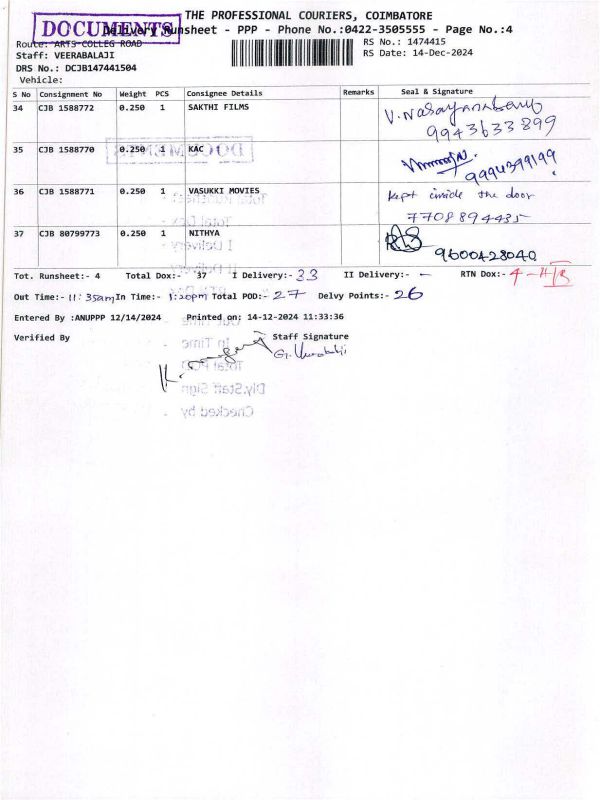 THE PROFESSIONAL COURIERS, COIMBATORE
DOCUMENTS
Delivery Runsheet - PPP - Phone No.:0422-3505555 - Page No.:4
Route: ARTS COLLEG ROAD
RS No.: 1474415
Staff: VEERABALAJI
RS Date: 14-Dec-2024
DRS No.: DCJB147441504
Vehicle:
S No Consignment No Weight PCS Consignee Details Remarks Seal & Signature
34 CJB 1588772 0.250 1 SAKTHI FILMS
9943633899
35 CJB 1588770 0.250 1 KAC
9994399199
DOCUMENTS
36 CJB 1588771 0.250 1 VASUKKI MOVIES kept inside the door
7708894435
37 CJB 80799773 0.250 1 NITHYA
9600428040
Tot. Runsheet:- 4 Total Dox:- 37 I Delivery:- 33 II Delivery:- - RTN Dox:- 4
Out Time:- 11:35am In Time:- 1:20pm Total POD:- 27 Delvy Points:- 26
Entered By :ANUPPP 12/14/2024 Printed on: 14-12-2024 11:33:36
Verified By Staff Signature
In Time
Total POD
Dly.Staff Sign
Checked by